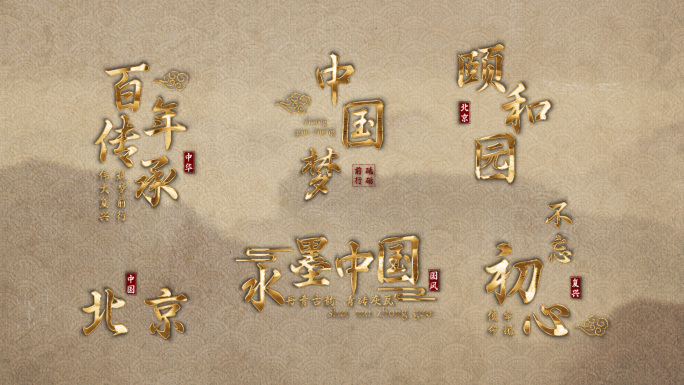 百年
传承
中华
中国梦
zhong
guo meng
砥砺
前行
颐和园
北京
北京
中国
水墨中国
国风
shui mo zhong guo
不忘
初心
复兴